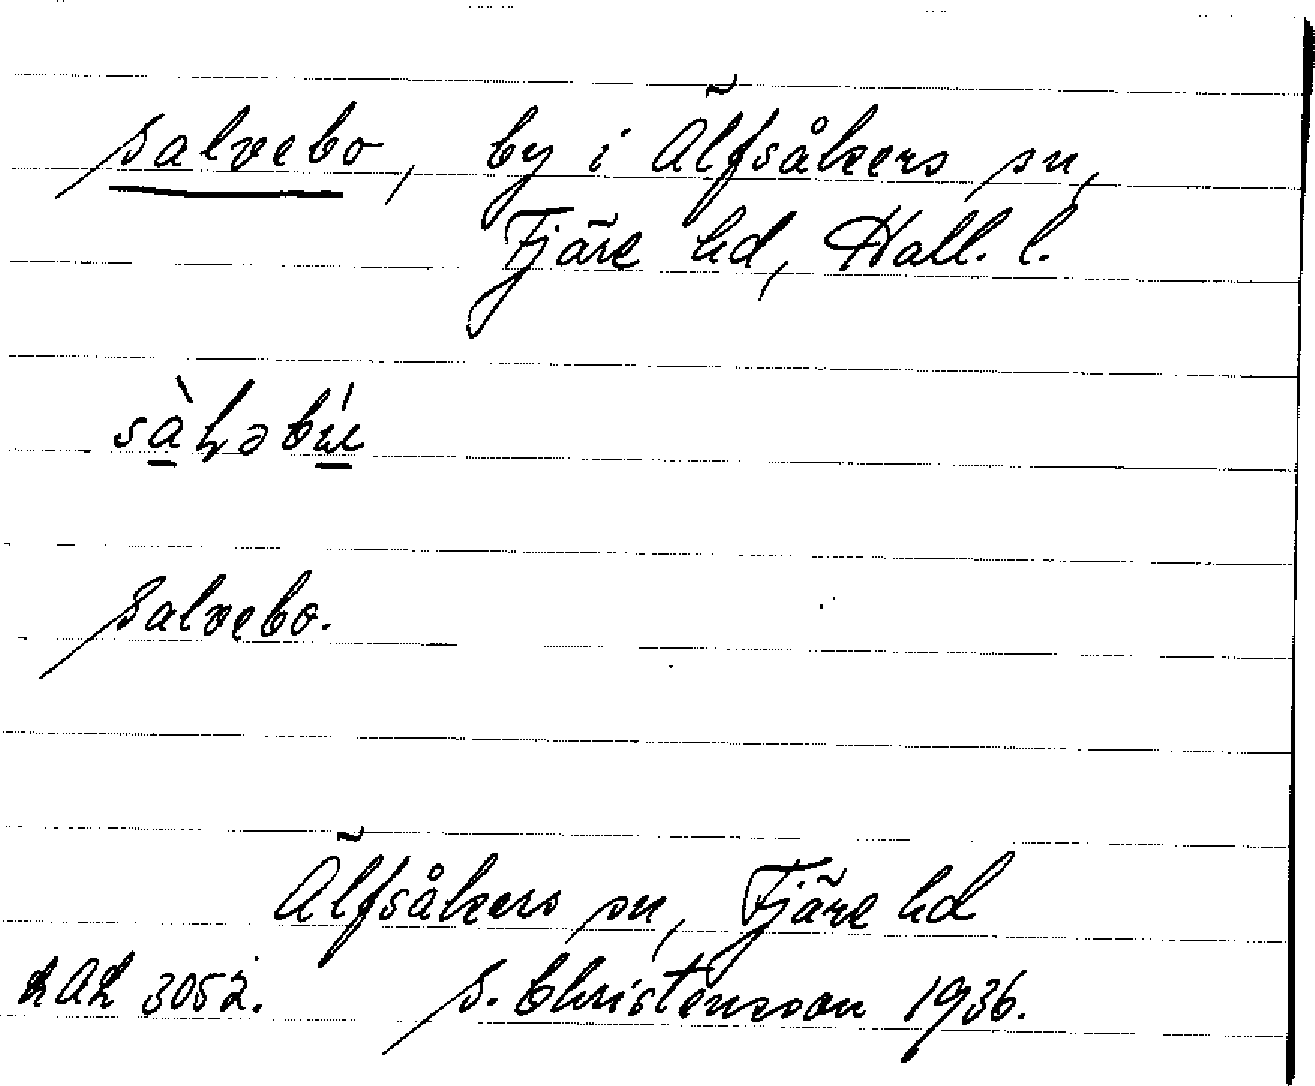 Salvebo, by i Älfsåkers sn,
Fjäre hd, Hall. l.
Salvebo.
Älfsåkers sn, Fjäre hd
LAL 3052. S. Christensson 1936.